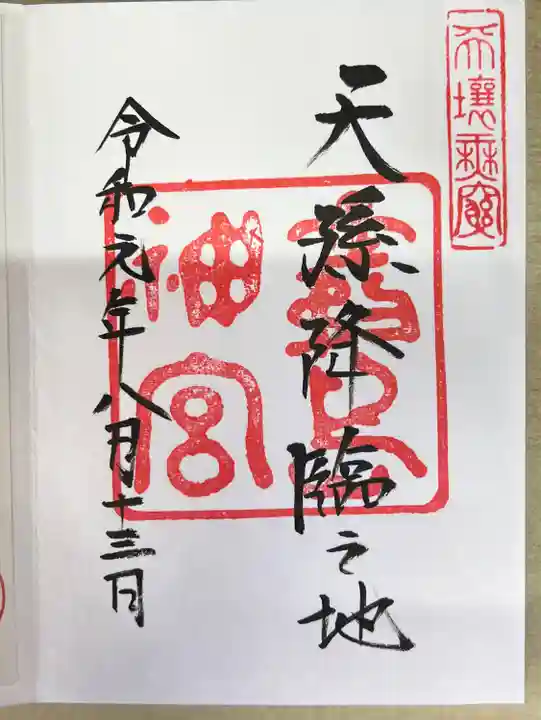 天壤無窮
天孫降臨之地
神宮
令和元年八月十三日